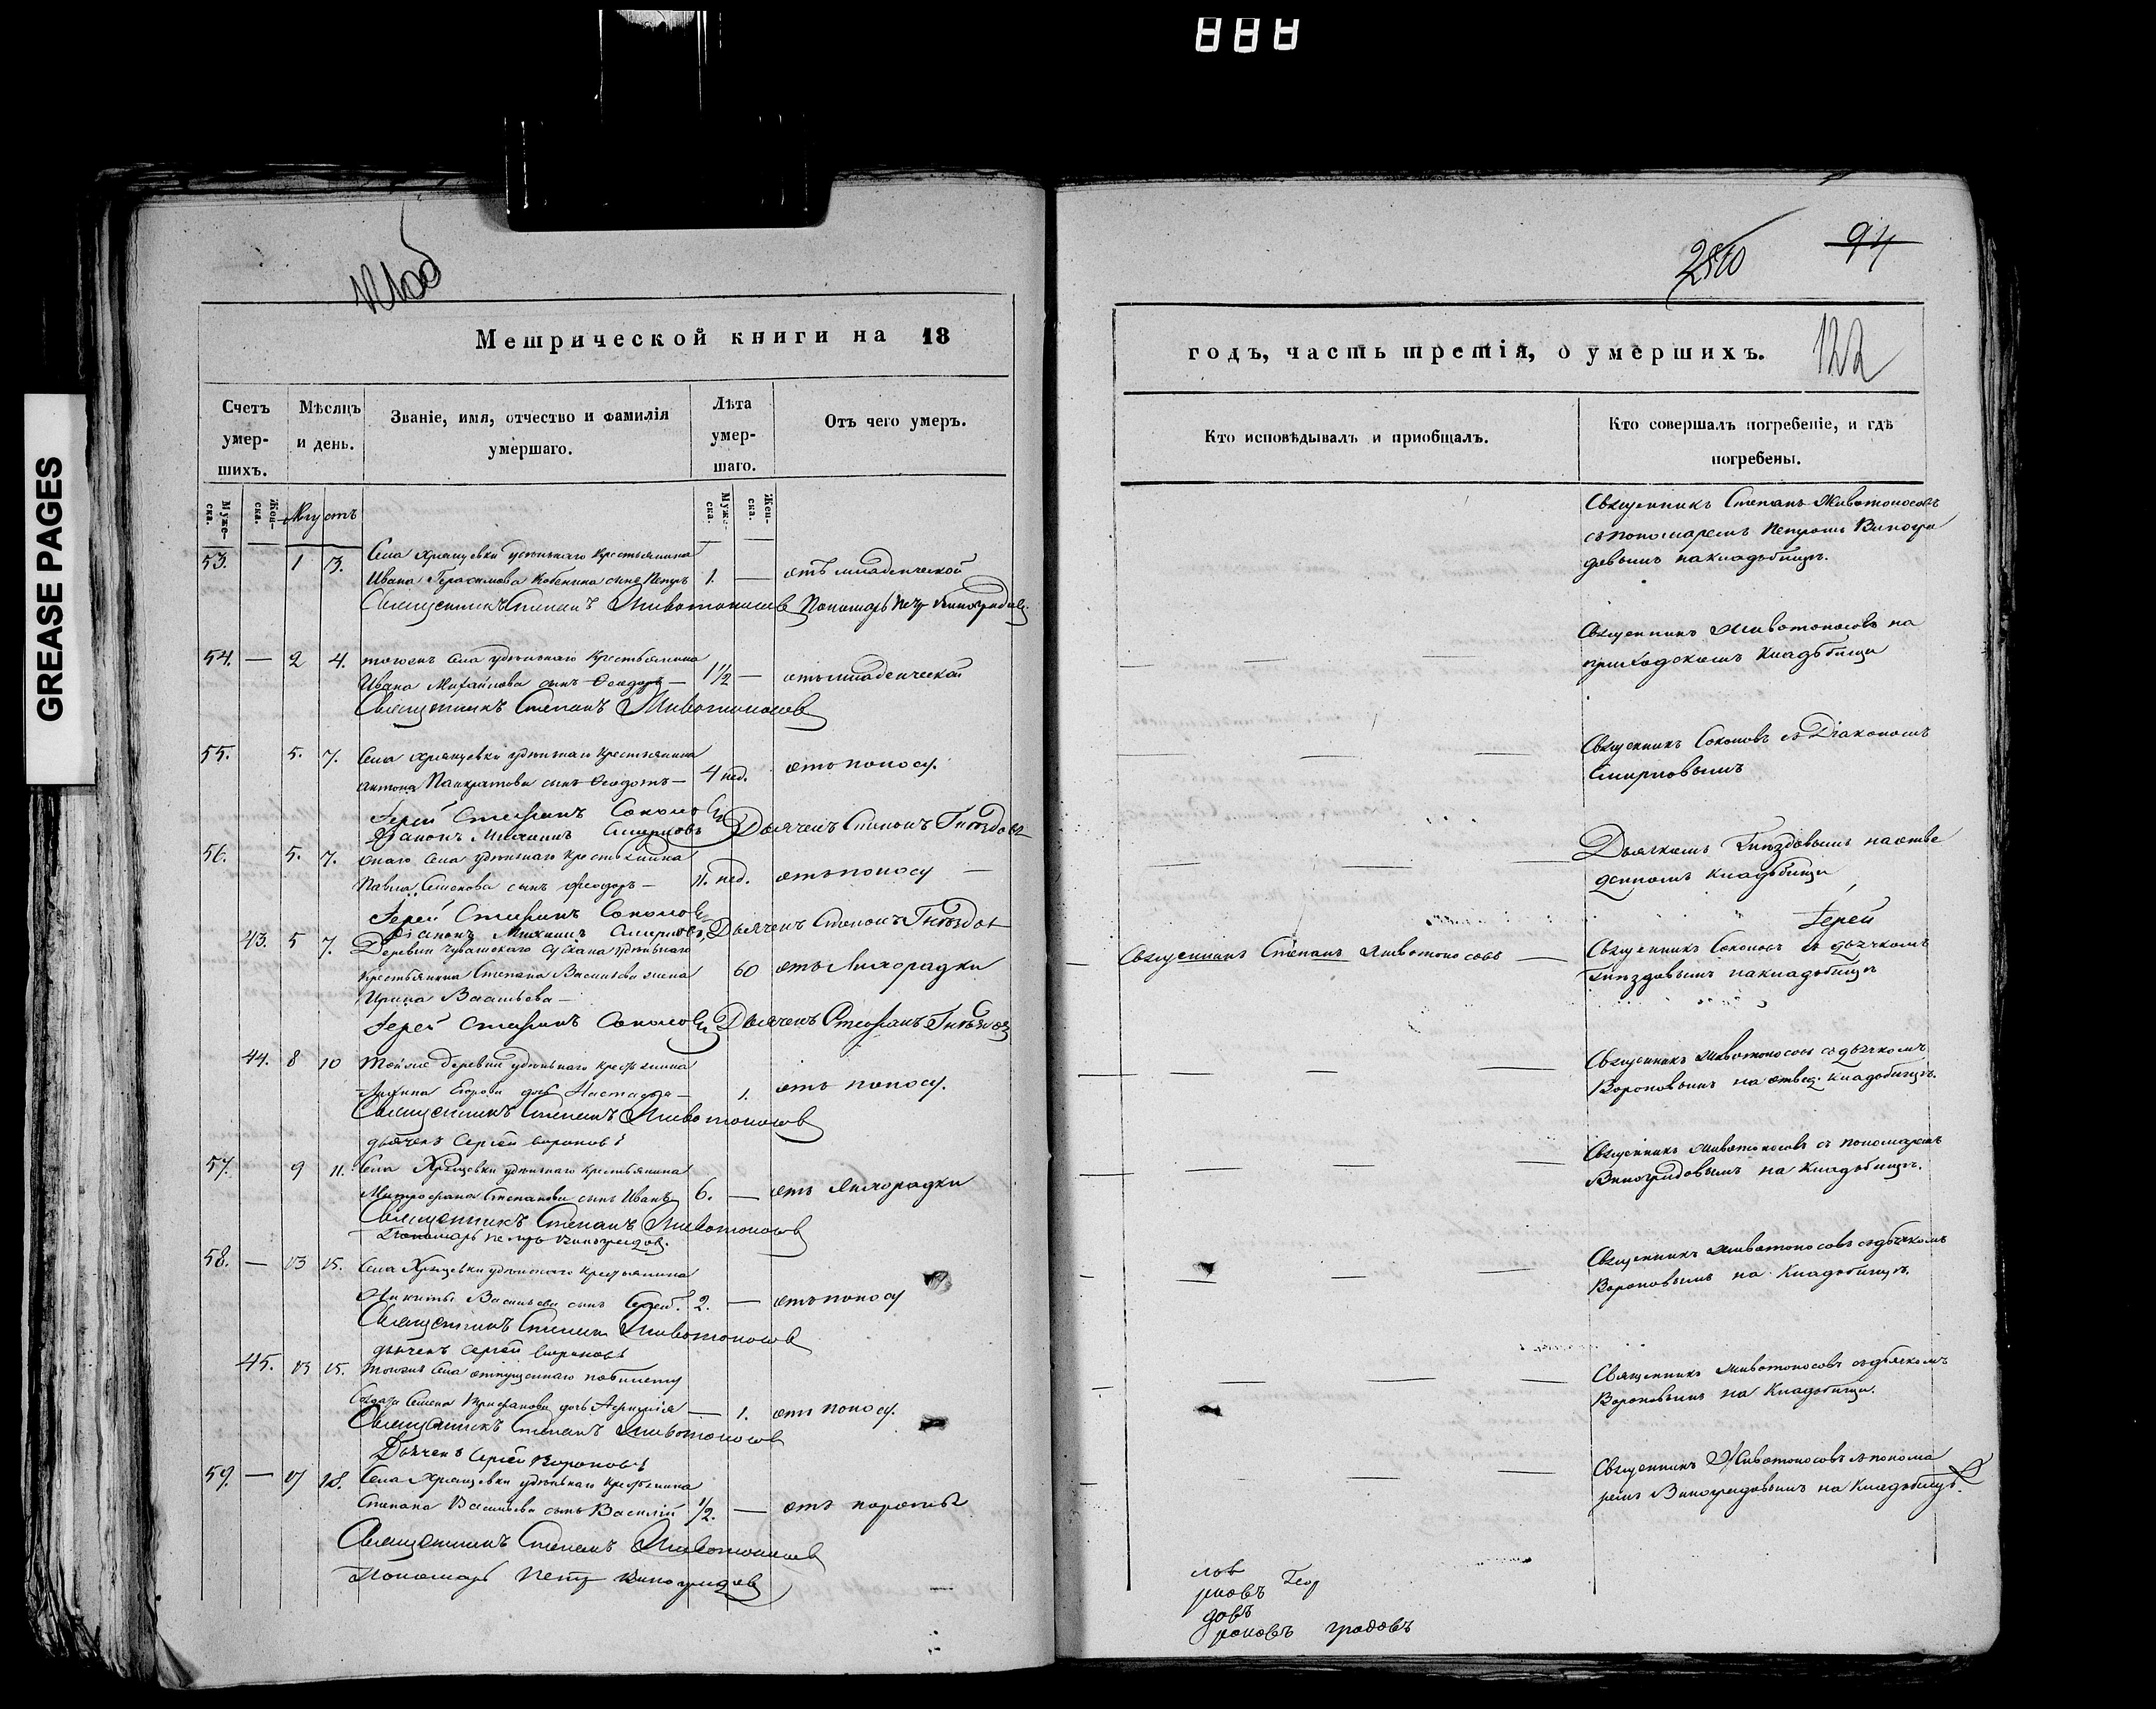 GREASE PAGES
Метрической книги на 18
Счетъ умер-шихъ.
Мѣсяцъ и день.
Званіе, имя, отчество и фамилія умершаго.
Лѣта умер-шаго.
Отъ чего умеръ.
Муже-ска.
Жен-ска.
Августъ
Муже-ска.
Жен-ска.
53. 1 3. Села Хрящевки удѣльнаго Крестьянина
Ивана Герасимова сынъ Петръ 1. — отъ младенческой
Священникъ Степанъ Животоносов Пономарь Петръ Виноградов
54. — 2 4. тогожъ села удѣльнаго Крестьянина
Ивана Михайлова сынъ Ѳеодоръ — 1 1/2 — отъ младенческой
Священникъ Степанъ Животоносов
55. 5. 7. Села Хрящевки удѣльнаго Крестьянина
Антона Панкратова сынъ Ѳеодотъ — 4 нед. отъ поносу.
Іерей Стефанъ Соколовъ
Діаконъ Михаилъ Смирновъ Дьячекъ Степанъ Гнѣздовъ
56. 5. 7. онаго села удѣльнаго Крестьянина
Павла Семенова сынъ Ѳеодоръ — 11. нед. отъ поносу —
Іерей Стефанъ Соколовъ
Діаконъ Михаилъ Смирновъ, Дьячекъ Степанъ Гнѣздов
43. 5 7. Деревни Чувашскаго Сускана удѣльнаго
Крестьянина Степана Васильева жена 60 отъ лихорадки
Ирина Васильева —
Іерей Стефанъ Соколовъ Дьячекъ Стефанъ Гнѣздов
44. 8 10 Тойже деревни удѣльнаго Крестьянина
Егорова дочь Настасья — 1. отъ поносу.
Священникъ Степанъ Животоносов
дьячекъ Сергей Вороновъ
57. 9 11. Села Хрящевки удѣльнаго Крестьянина
Митрофана Степанова сынъ Иванъ 6. — отъ лихорадки
Священникъ Степанъ Животоносов
Пономарь Петръ Виноградов.
58. — 13 15. Села Хрящевки удѣльнаго Крестьянина
Никиты Васильева сынъ Сергей. 2. — отъ поносу
Священникъ Степанъ Животоносов
дьячекъ Сергей Вороновъ
45. 13 15. Тогожъ села отпущеннаго по билету
Солдата Семена дочь — 1. отъ поносу.
Священникъ Степанъ Животоносов
Дьячекъ Сергей Вороновъ
59. — 17 18. Села Хрящевки удѣльнаго Крестьянина
Степана Васильева сынъ Василій 1/2. — отъ
Священникъ Степанъ Животоносов
Пономарь Петръ Виноградов
94
122
годъ, часть третія, о умершихъ.
Кто исповѣдывалъ и приобщалъ.
Кто совершалъ погребеніе, и гдѣ погребены.
Священникъ Степанъ Животоносовъ
съ пономаремъ Петромъ Виногра
довымъ на кладбищѣ.
Священникъ Животоносовъ на
приходскомъ кладбищѣ
Священникъ Соколовъ съ Діакономъ
Смирновымъ
Дьячкомъ Гнѣздовымъ на отве
денномъ кладбищѣ
Іерей
Священникъ Степанъ Животоносовъ — Священникъ Соколовъ съ дьячкомъ
Гнѣздовымъ на кладбищѣ
Священникъ Животоносовъ съ дьячкомъ
Вороновымъ на отвед. кладбищѣ.
Священникъ Животоносовъ съ пономаремъ
Виноградовымъ на кладбищѣ.
Священникъ Животоносовъ съ дьячкомъ
Вороновымъ на кладбищѣ.
Священникъ Животоносовъ съ дьячкомъ
Вороновымъ на кладбищѣ.
Священникъ Животоносовъ съ понома
ремъ Виноградовымъ на кладбищѣ.
лов
рновъ Геор
довъ
роновъ градовъ